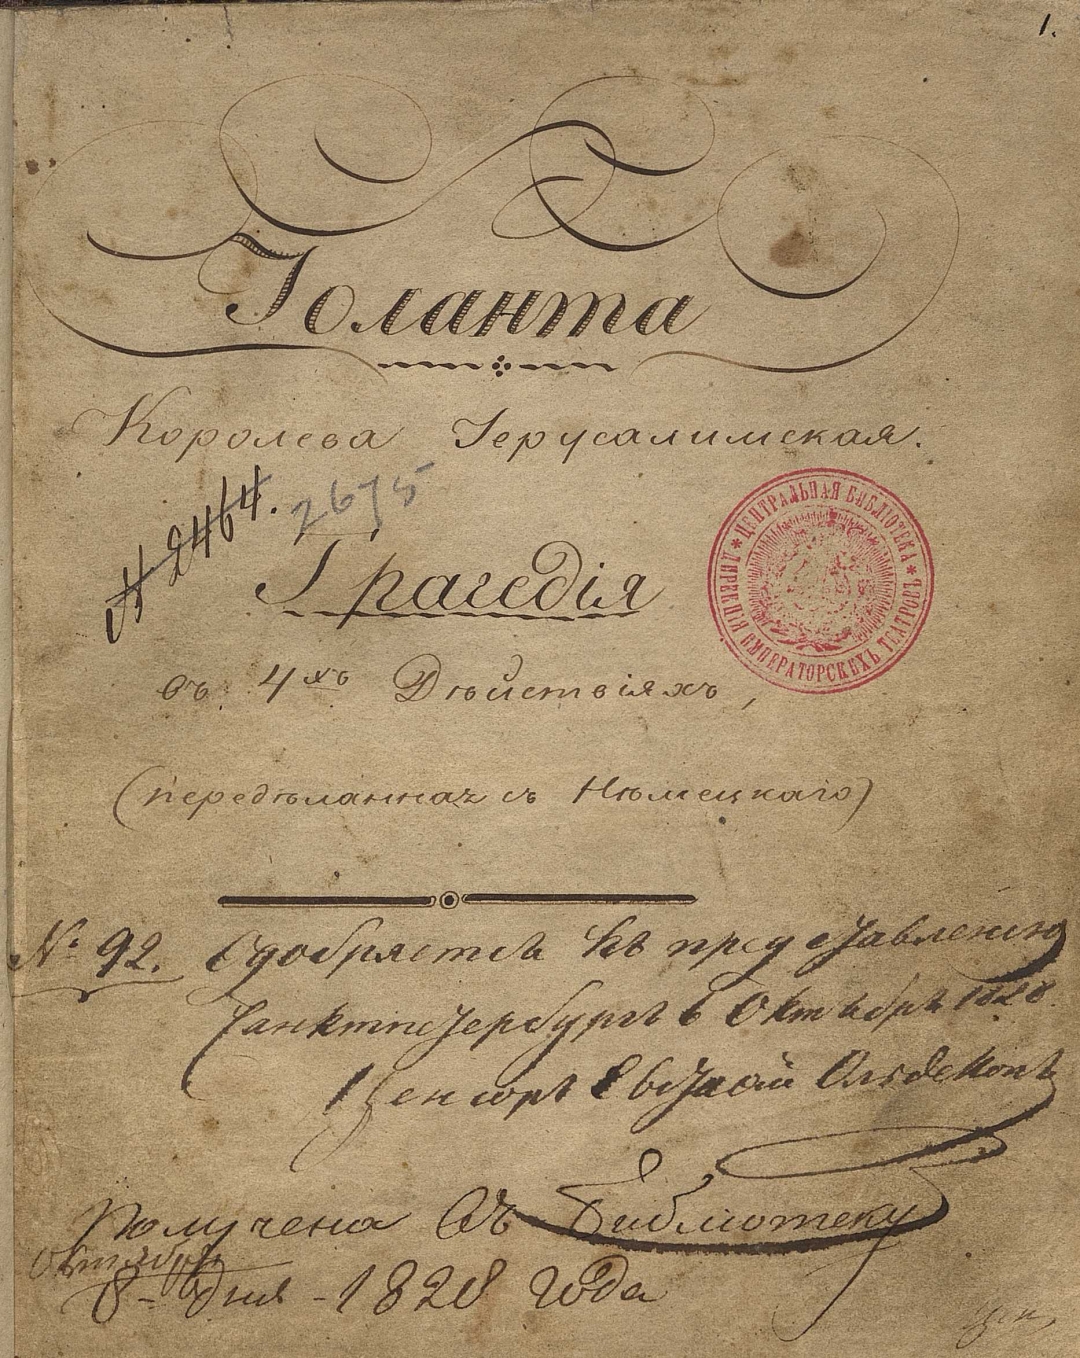 1.
Іоланта
Королева Іерусалимская.
№ 2464.
2675
Трагедія
ЦЕНТРАЛЬНАЯ БИБЛІОТЕКА
ДИРЕКЦІИ ИМПЕРАТОРСКИХЪ ТЕАТРОВЪ
въ 4хъ Дѣйствіяхъ,
(передѣланная съ Нѣмецкаго)
№ 92. Одобряется къ представленію
Санктпетербургъ 6 Октября 1828.
Цензоръ Евстафій Ольдекопъ
Получена Въ Библиотеку
октября
8- дня - 1828 года